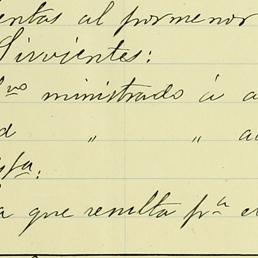 entas al pormenor
Sirvientes:
mo ministrado á a
d " " a
fa:
a que resulta pa e